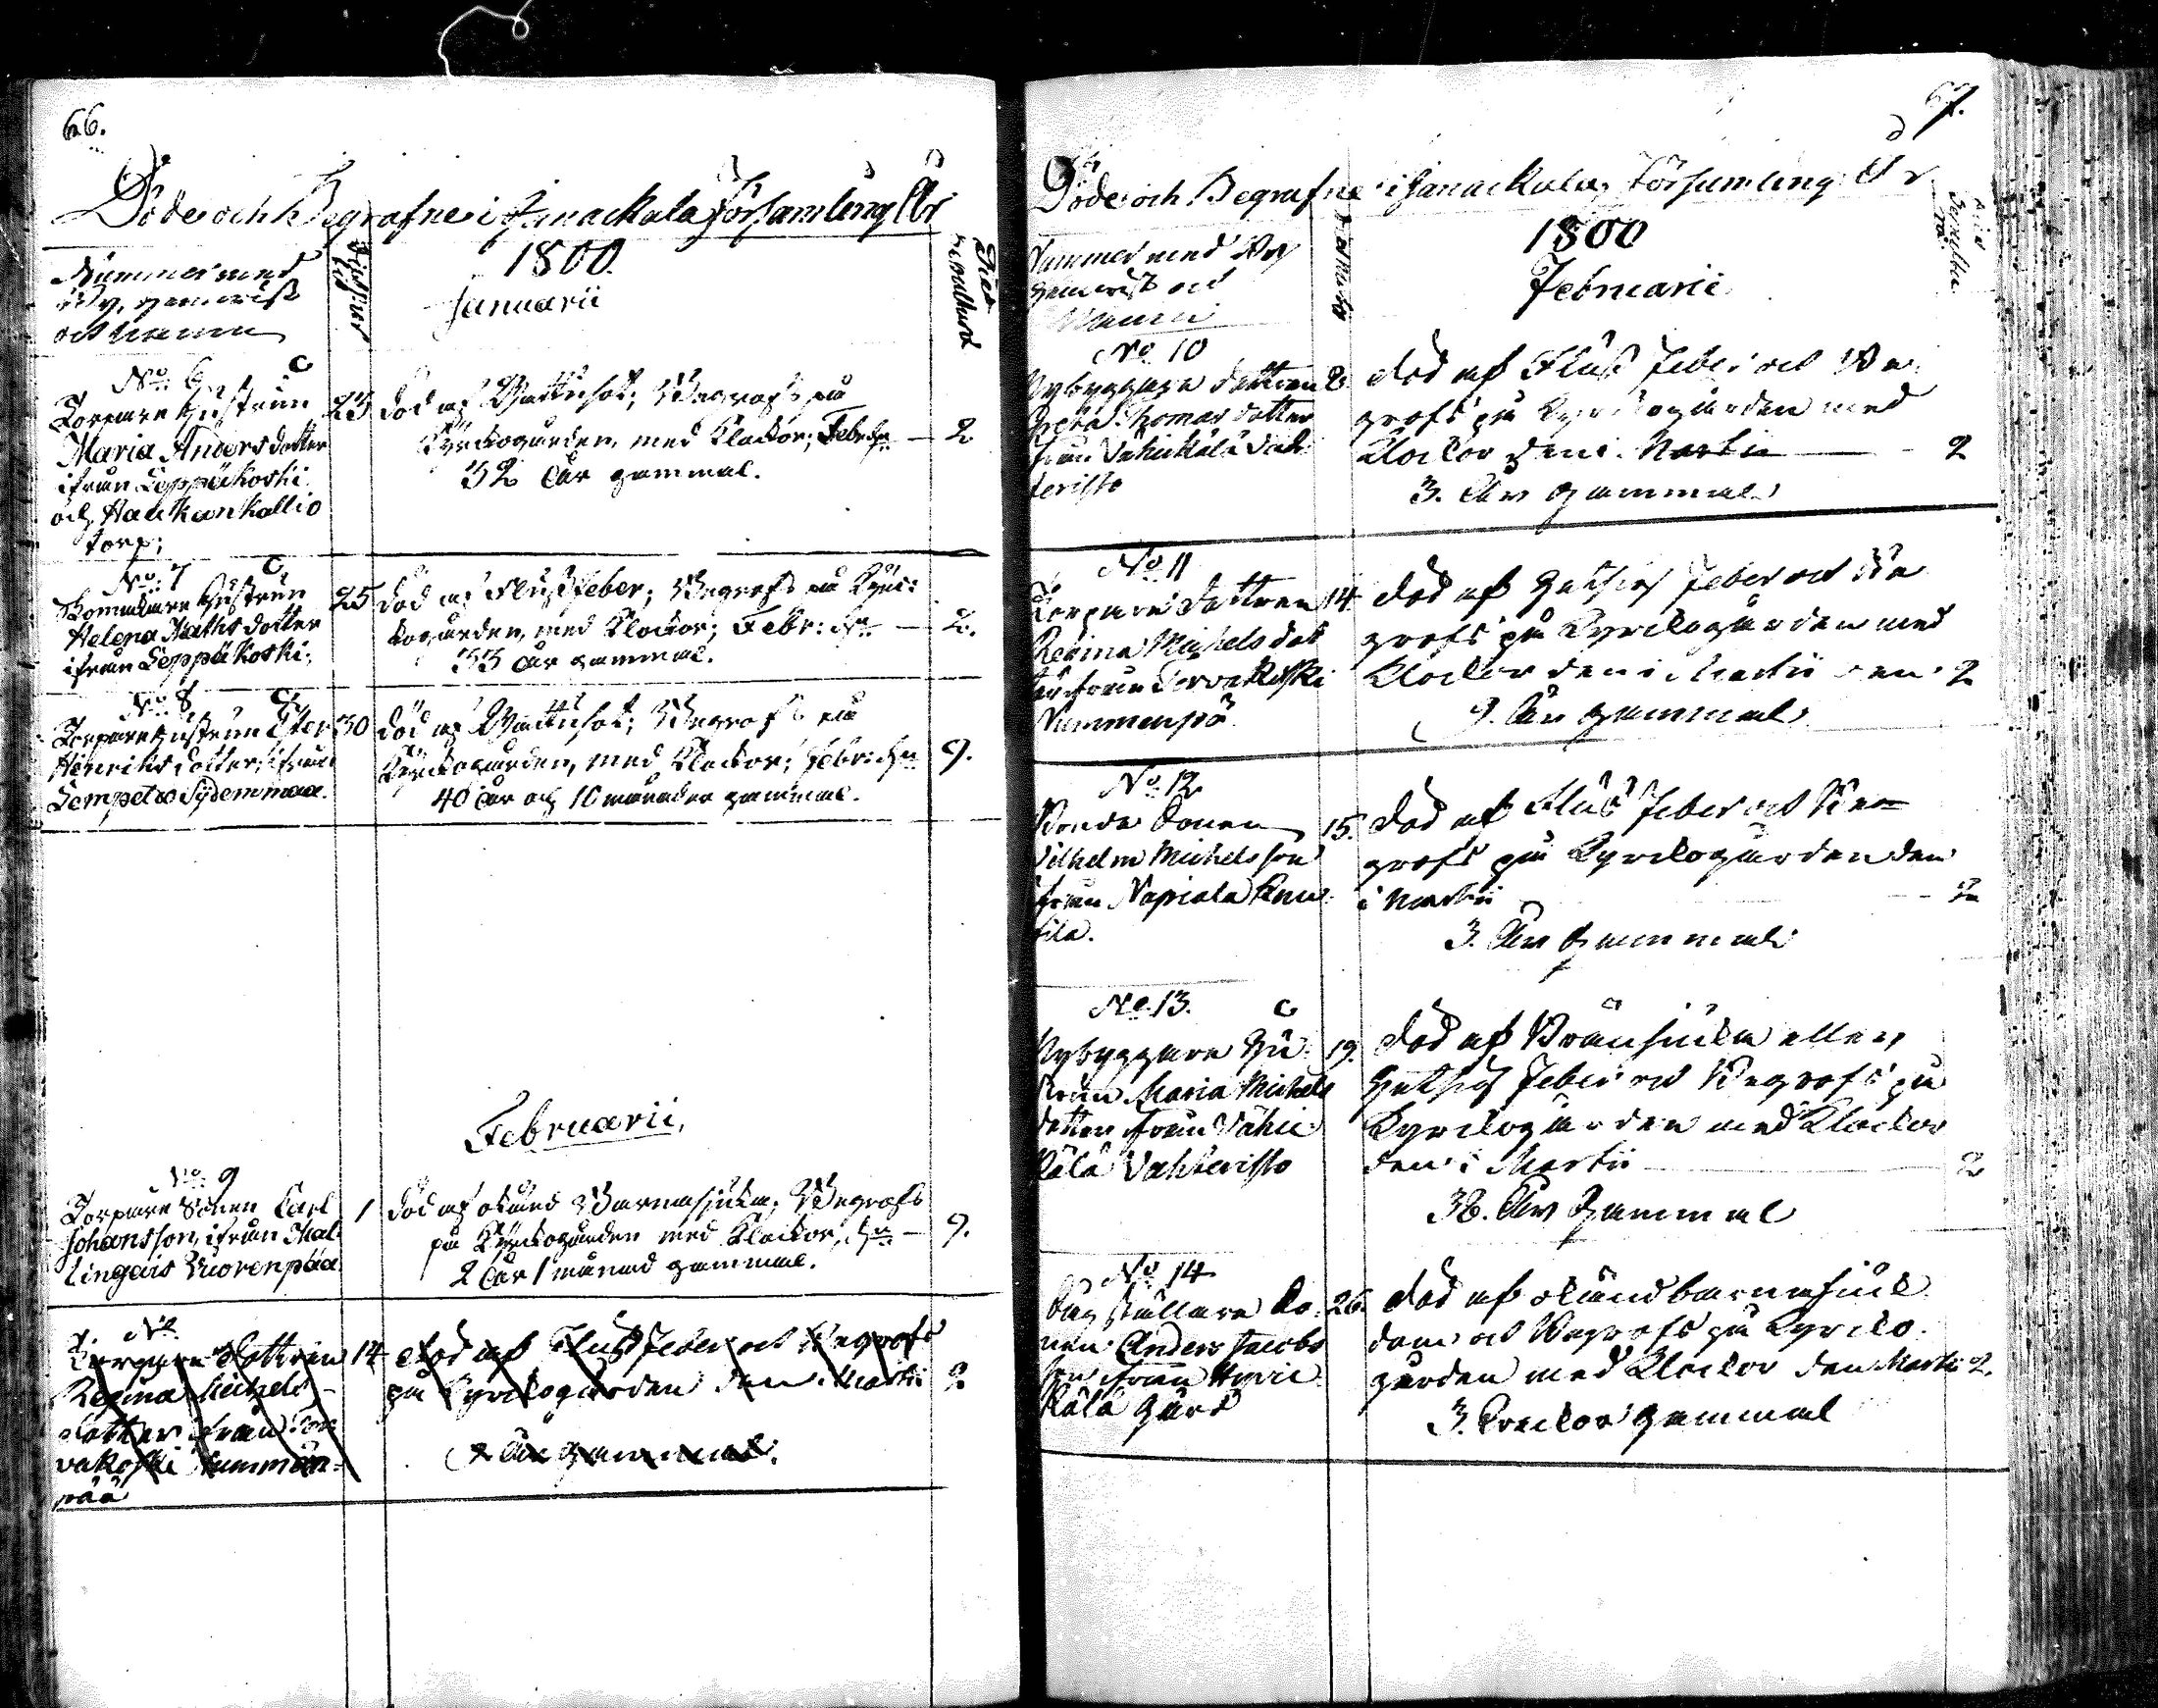 66.
Döde och Begrafne i Janackala Församling År
1800.
Nummer med
By, hemvist
och namn
Januarii
No: 6
Torpare Hustrun
Maria Anders dotter
ifrån Leppäkoski
och Haukankallio
torp;
23
död af Wattusot; Begrofs på
Kyrckogården, med Klockor; Febr: den — 2
32 År gammal.
No: 7
Hustrun
Helena Maths dotter
ifrån Leppäkoski:
25
död af Flussfeber; Begrofs på Kyrc:
kogården, med Klockor; Febr: den — 2.
33 År gammal.
No: 8
Torpare Hustrun Ester
Henriks dotter, ifrån
Lempetso Sydemmaa.
30
död af Wattusot; Begrofs på
Kyrckogården, med Klockor; Febr: den 9.
40 År och 10 månader gammal.
Februarii,
No: 9
Torpare Sonen Carl
Johansson, ifrån Mal-
lingais Wuorenpää
1
död af okänd Barnasjuka; Begrofs
på Kyrckogården med Klockor, den — 9.
2 År 1 månad gammal.
No
Torpare Dottren
Regina Michels-
dotter ifrån Tor
vakoski Nummen-
pää
14
död af Flussfeber och Begrofs
på Kyrckogården den Martii 2
År gammal.
67.
Döde och Begrafne i Janackala Församling År
1800
Nummer med By
hemvist och
Namn
Februarii
No 10
Nybyggare dottren
Thomas dotter
från Vähickälä Vah
teristo
2
död af Fluss feber och Be
grofs på Kyrckogården med
Klockor den i Martii — 2
3. År gammal
No 11
Torpare dottren
Regina Michels dot
ter från Torvakoski
Nummenpä
14
död af feber och Be
grofs på Kyrckogården med
Klockor den i Martii den 2
9. År gammal
No 12
Bonde Sonen
Vilhelm Michelsson
från Napiala
sila.
15.
död af Flus feber och Be
grofs på Kyrckogården den
i Martii 2
3. År gammal
No. 13.
Nybyggare Hu
strun Maria Michels
dotter från Vähic
kälä Vahteristo
19.
död af Brännsjuka eller
feber och Begrofs på
Kyrckogården med Klockor
den i Martii 2
38. År Gammal
No 14
So
nen Anders Jacobs
son ifrån Hyvic
kälä Gård
26.
död af okänd barnasjuk
dom och Begrofs på Kyrcko
gården med Klockor den Martii 2.
3. Veckor gammal